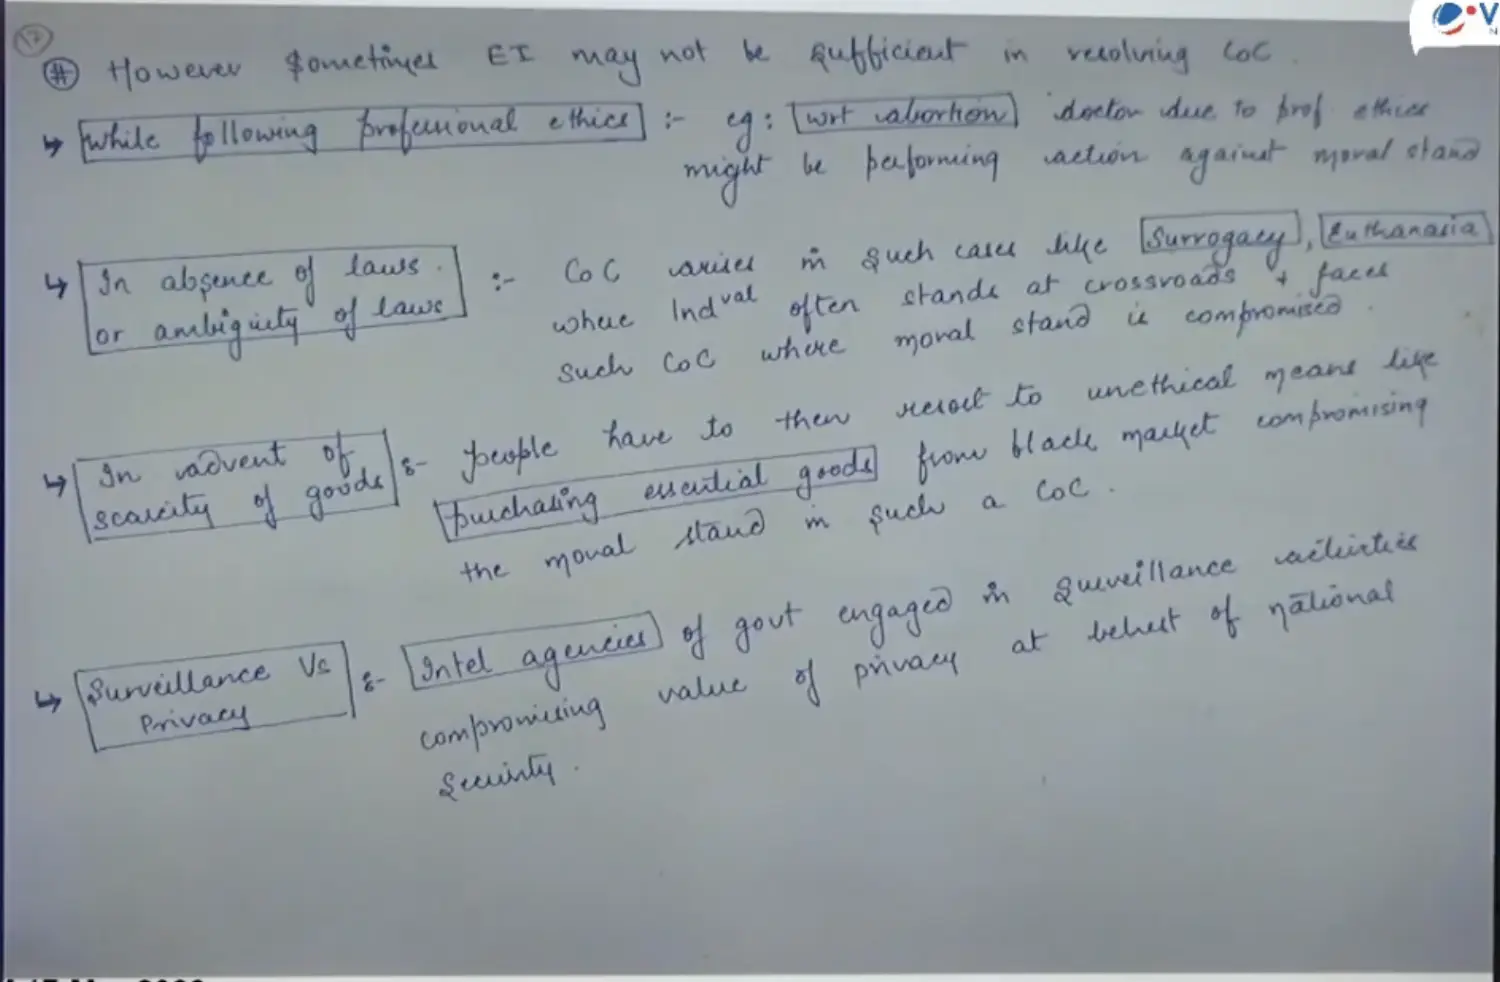 17
# However sometimes EI may not be sufficient in resolving CoC.
↳ While following professional ethics :- eg: wrt abortion doctor due to prof ethics
might be performing action against moral stand
↳ In absence of laws
or ambiguity of laws :- CoC arises in such cases like Surrogacy, Euthanasia
where Indval often stands at crossroads & faces
such CoC where moral stand is compromised.
↳ In advent of
scarcity of goods :- people have to then resort to unethical means like
purchasing essential goods from black market compromising
the moral stand in such a CoC.
↳ Surveillance Vs
Privacy :- Intel agencies of govt engaged in surveillance activities
compromising value of privacy at behest of national
security.
V
N